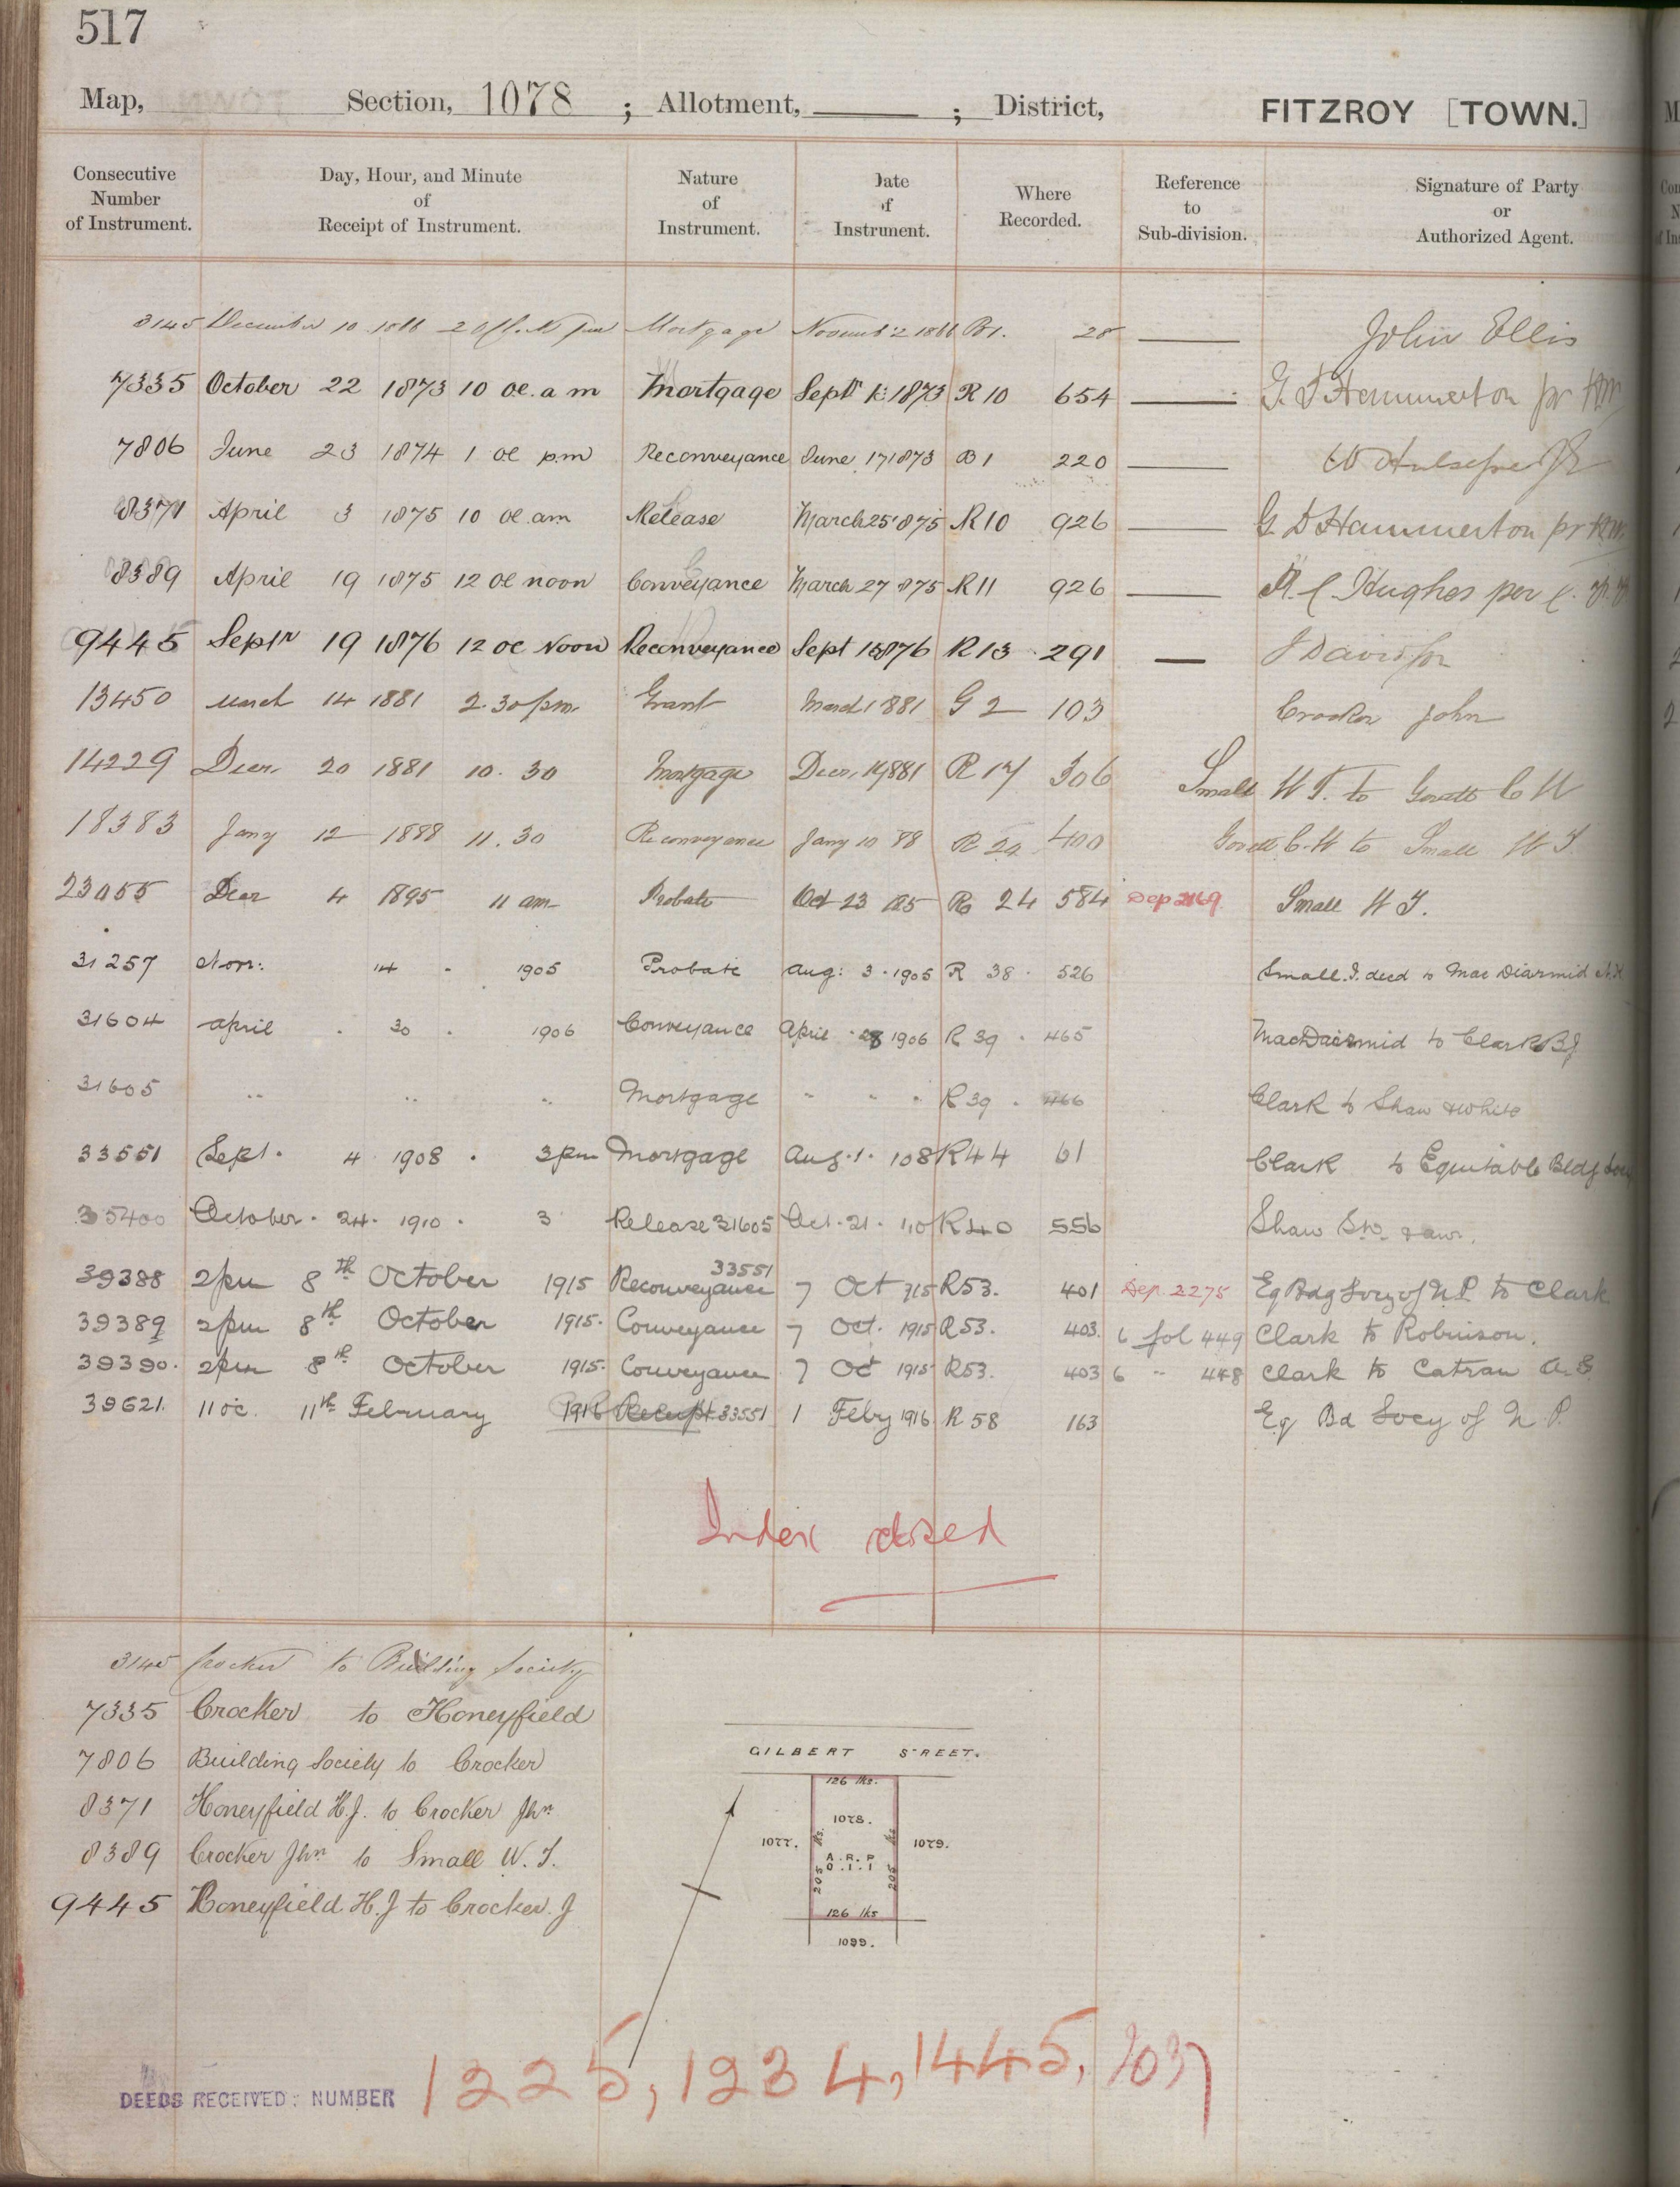 517
Map, Section, 1078 ; Allotment, ; District, FITZROY [TOWN.]
Consecutive Number of Instrument. Day, Hour, and Minute of Receipt of Instrument. Nature of Instrument. Date of Instrument. Where Recorded. Reference to Sub-division. Signature of Party or Authorized Agent.
3145 December 10 1866 Mortgage 1866 B1. 28 John Ellis
7335 October 22 1873 10 oc. a m Mortgage Septr 1873 R 10 654 Hammerton pr
7806 June 23 1874 1 oc pm Reconveyance June 17 1873 B 1 220
8371 April 3 1875 10 oc. am Release March 25 1875 R10 926 G D Hammerton pr
8389 April 19 1875 12 oc noon Conveyance March 27 875 R11 926 Hughes per
9445 Septr 19 1876 12 oc Noon Reconveyance Sept 1876 R13 291 J Davidson
13450 March 14 1881 2.30 pm. Grant March 1 881 G 2 103 Crocker John
14229 Decr. 20 1881 10.30 Mortgage Decr. 881 R 17 306 Small W J. to Govett C W
18383 Jany 12 1888 11.30 Reconveyance Jany 10 88 R 400 Govett C. W to Small W J
23055 Decr 4 1895 11 am Probate Oct 23 R 24 584 Dep Small W J.
31257 Nov: 14 1905 Probate Aug: 3. 1905 R 38. 526 Small. J. decd to Mac Diarmid
31604 April . 30 . 1906 Conveyance April 28 1906 R 39 . 465 MacDairmid to Clark B J
31605 " " " Mortgage " " " R 39 . 466 Clark to Shaw & White
33551 Sept. 4 1908 . 3pm Mortgage Aug. 1. 108 R44 61 Clark to Equitable Bldg
35400 October. 24. 1910. 3 Release 31605 Oct. 21. R40 556 Shaw
33551
39388 2pm 8th October 1915 Reconveyance 7 Oct 915 R53. 401 Dep. 2275 Eq Bdg Socy of N P. to Clark
39389 2pm 8th October 1915. Conveyance 7 Oct. 1915 R53. 403. 6 fol 449 Clark to Robinson.
39390. 2pm 8th October 1915. Conveyance 7 Oct 1915 R53. 403 6 " 448 Clark to Catran A. E.
39621. 11 oc. 11th February 1916 Receipt 33551 1 Feby 1916. R 58 163 Eq Bd Socy of N. P.
Index closed
3145 Crocker to Building Society
7335 Crocker to Honeyfield
7806 Building Society to Crocker
8371 Honeyfield H. J. to Crocker Jhn
8389 Crocker Jhn to Small W. J.
9445 Honeyfield H. J to Crocker. J
GILBERT STREET.
126 lks.
1078.
1077.
1079.
A. R. P
0. 1. 1
205 lks.
205 lks
126 lks
1099.
DEEDS RECEIVED: NUMBER 1225, 1234, 1445, 2037